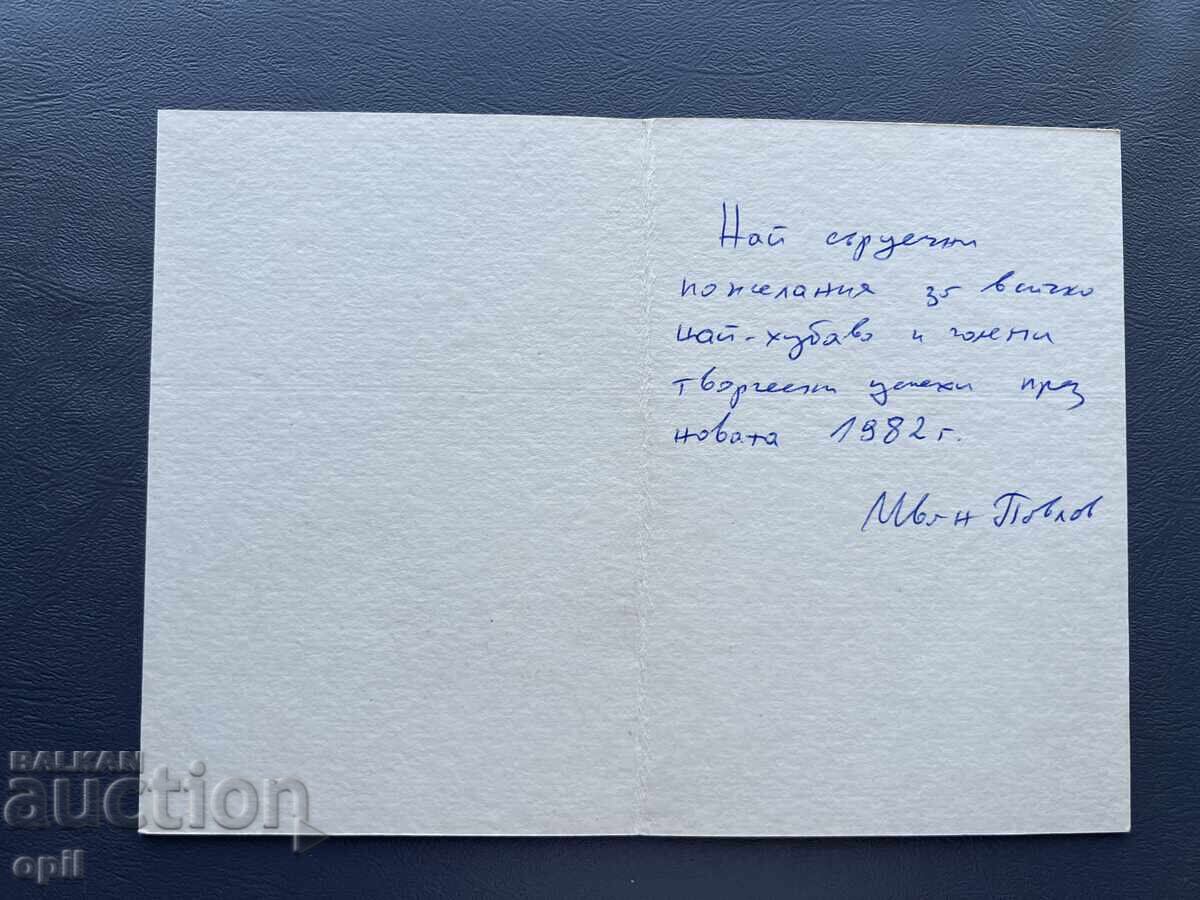 Най сърдечни
пожелания за всичко
най-хубаво и големи
творчески успехи през
новата 1982 г.
Иван Павлов
BALKAN
auction
opil